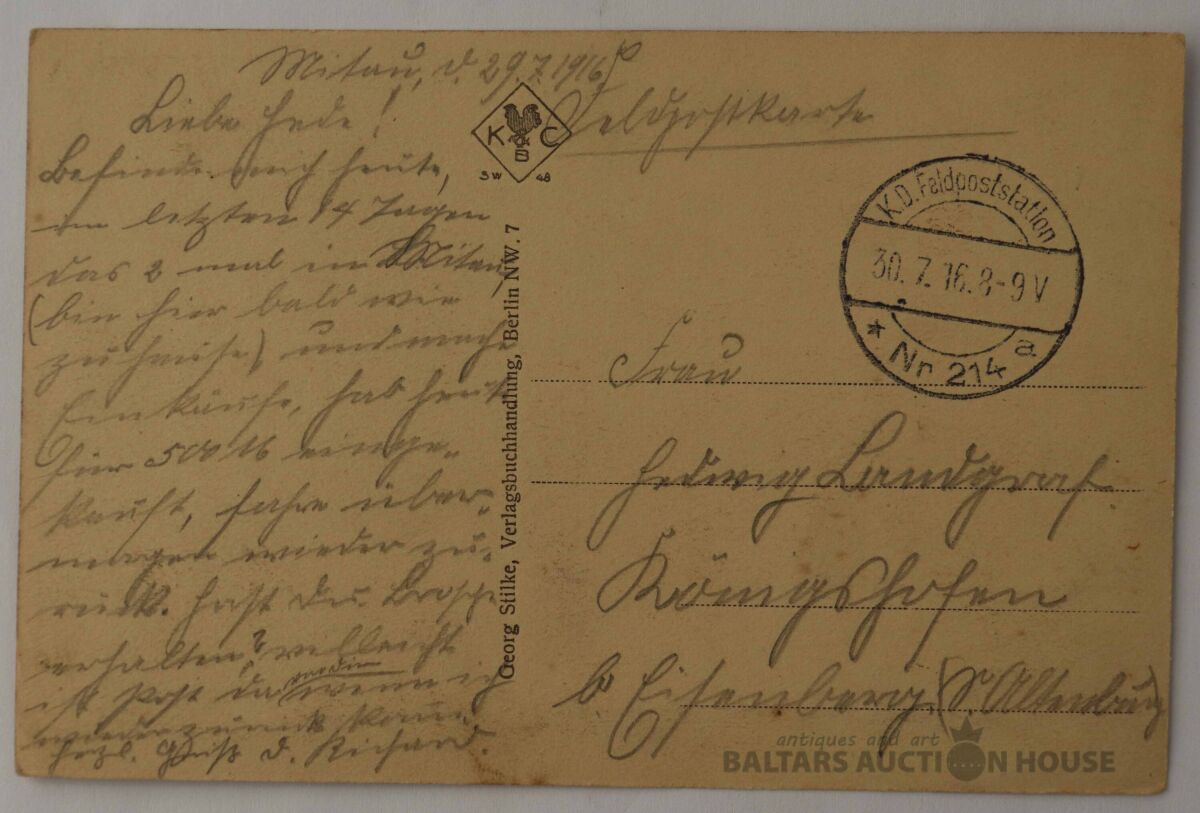 Mitau, d. 29.7.1916
Liebe Hede!
Befinde mich heute,
im letzten 14 Tagen
das 2 mal in Mitau,
(bin hier bald wie
zu Hause) und mache
Einkäufe, hab heut
für 500 M einge-
kauft, fahre über-
morgen wieder zu-
rück. Hast du Brosche
erhalten? vielleicht
ist Post da wenn ich
wieder zurück komm.
Herzl. Gruß d. Richard.
K C
B
SW 48
Georg Stilke, Verlagsbuchhandlung, Berlin NW. 7
Feldpostkarte
K.D. Feldpoststation
30.7.16.8-9V
* Nr 214 a
Frau
Hedwig Landgraf
Königshofen
b Eisenberg (S. Altenburg)
antiques and art
BALTARS AUCTION HOUSE